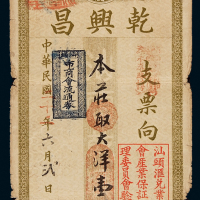 乾興昌
支票向
本莊取大洋壹
中華民國年六月弍日
市商會流通券
汕頭滙兌業
會產業保証
理委員會驗